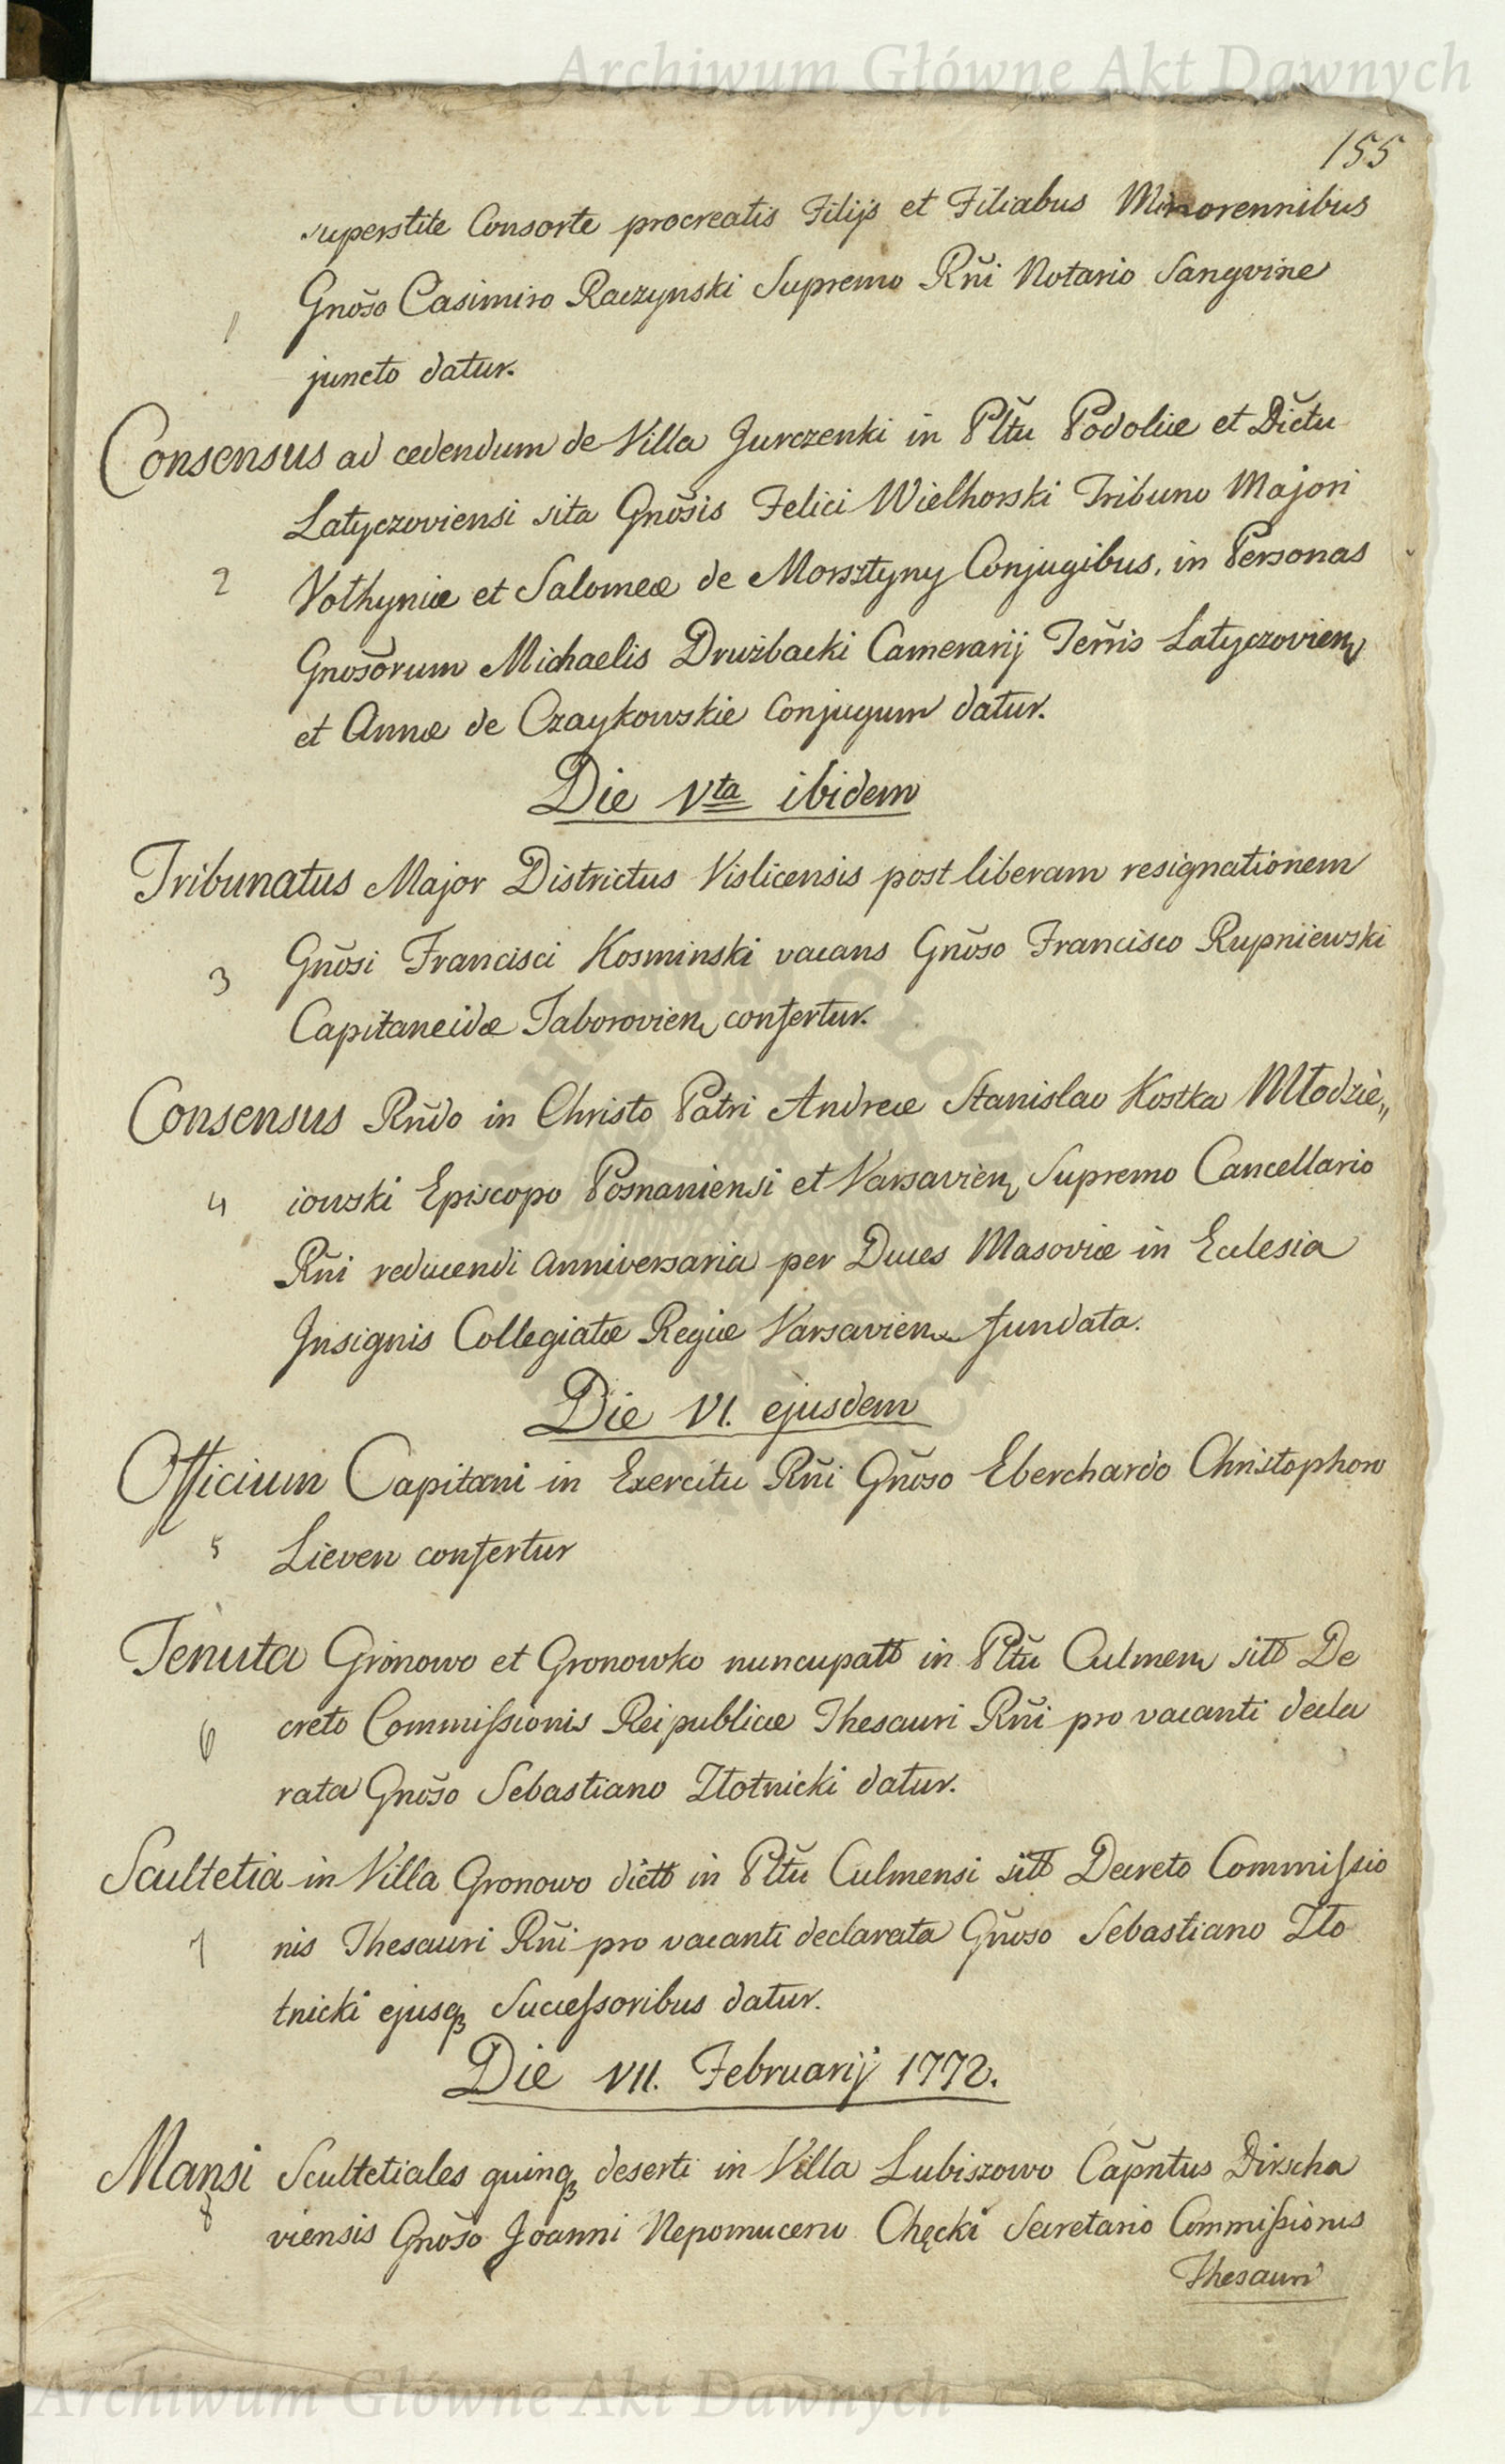 Archiwum Główne Akt Dawnych
155
superstite Consorte procreatis Filijs et Filiabus Minorennibus
Gnõso Casimiro Raczynski Supremo Rñi Notario Sangvine
1
juncto datur.
Consensus ad cedendum de Villa Jurczenki in Pltũ Podoliæ et Dictũ
Latyczoviensi sita Gnõsis Felici Wielhorski Tribuno Majori
2 Volhyniæ et Salomeæ de Morsztyny Conjugibus, in Personas
Gnosõrum Michaelis Drużbacki Camerarij Terrĩs Latyczovien
et Annæ de Czaykowskie Conjugum datur.
Die Vta ibidem
Tribunatus Major Districtus Vislicensis post liberam resignationem
3 Gnõsi Francisci Kosminski vacans Gnõso Francisco Rupniewski
Capitaneidæ Taborovien confertur.
Consensus Rñdo in Christo Patri Andreæ Stanislao Kostka Młodzie„
4 iowski Episcopo Posnaniensi et Varsavien Supremo Cancellario
Rñi reducendi anniversaria per Duces Masoviæ in Ecclesia
Insignis Collegiatæ Regiæ Varsavien fundata.
Die VI. ejusdem
Officium Capitani in Exercitu Rñi Gñoso Eberchardo Christophoro
5 Lieven confertur
Tenuta Gronowo et Gronowko nuncupatt in Pltũ Culmen sitt De
6 creto Commissionis Reipublicæ Thesauri Rñi pro vacanti decla
rata Gnõso Sebastiano Złotnicki datur.
Scultetia in Villa Gronowo dictt in Pltũ Culmensi sitt Decreto Commissio
7 nis Thesauri Rñi pro vacanti declarata Gñoso Sebastiano Zło
tnicki ejusq Successoribus datur.
Die VII. Februarij 1772.
Mansi Scultetiales quinq deserti in Villa Lubiszowo Capñtus Dirscha
8 viensis Gnõso Joanni Nepomuceno Chęcki Secretario Commissionis
Thesauri
Archiwum Główne Akt Dawnych